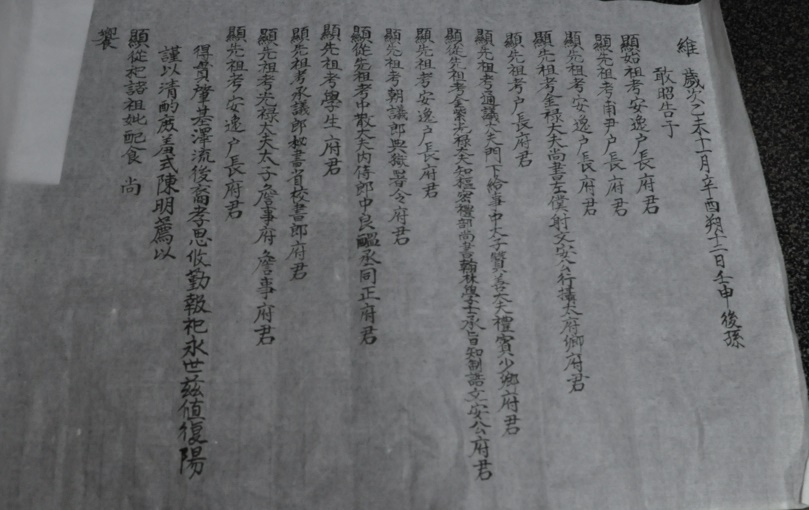 維 歲次乙未十一月辛酉朔十二日壬申後孫
敢昭告于
顯始祖考安逸戶長府君
顯先祖考甫尹戶長府君
顯先祖考安逸戶長府君
顯先祖考金祿大夫尚書左僕射文安公行攝太府卿府君
顯先祖考戶長府君
顯先祖考通議大夫門下給事中太子贊善大夫禮賓少卿府君
顯從先祖考金紫光祿大夫知樞密 部尚書翰林學士承旨知制誥文安公府君
顯先祖考安逸戶長府君
顯先祖考朝議郎典獄署令府君
顯從先祖考中散大夫內侍郎中良醞丞同正府君
顯先祖考學生府君
顯先祖考承議郎秘書省校書郎府君
顯先祖考光祿大夫太子詹事府詹事府君
顯先祖考安逸戶長府君
得貫肇基澤流後裔孝思攸勤報祀永世茲値復陽
謹以清酌庶羞式陳明薦以
顯從祀諸祖妣配食 尚
饗